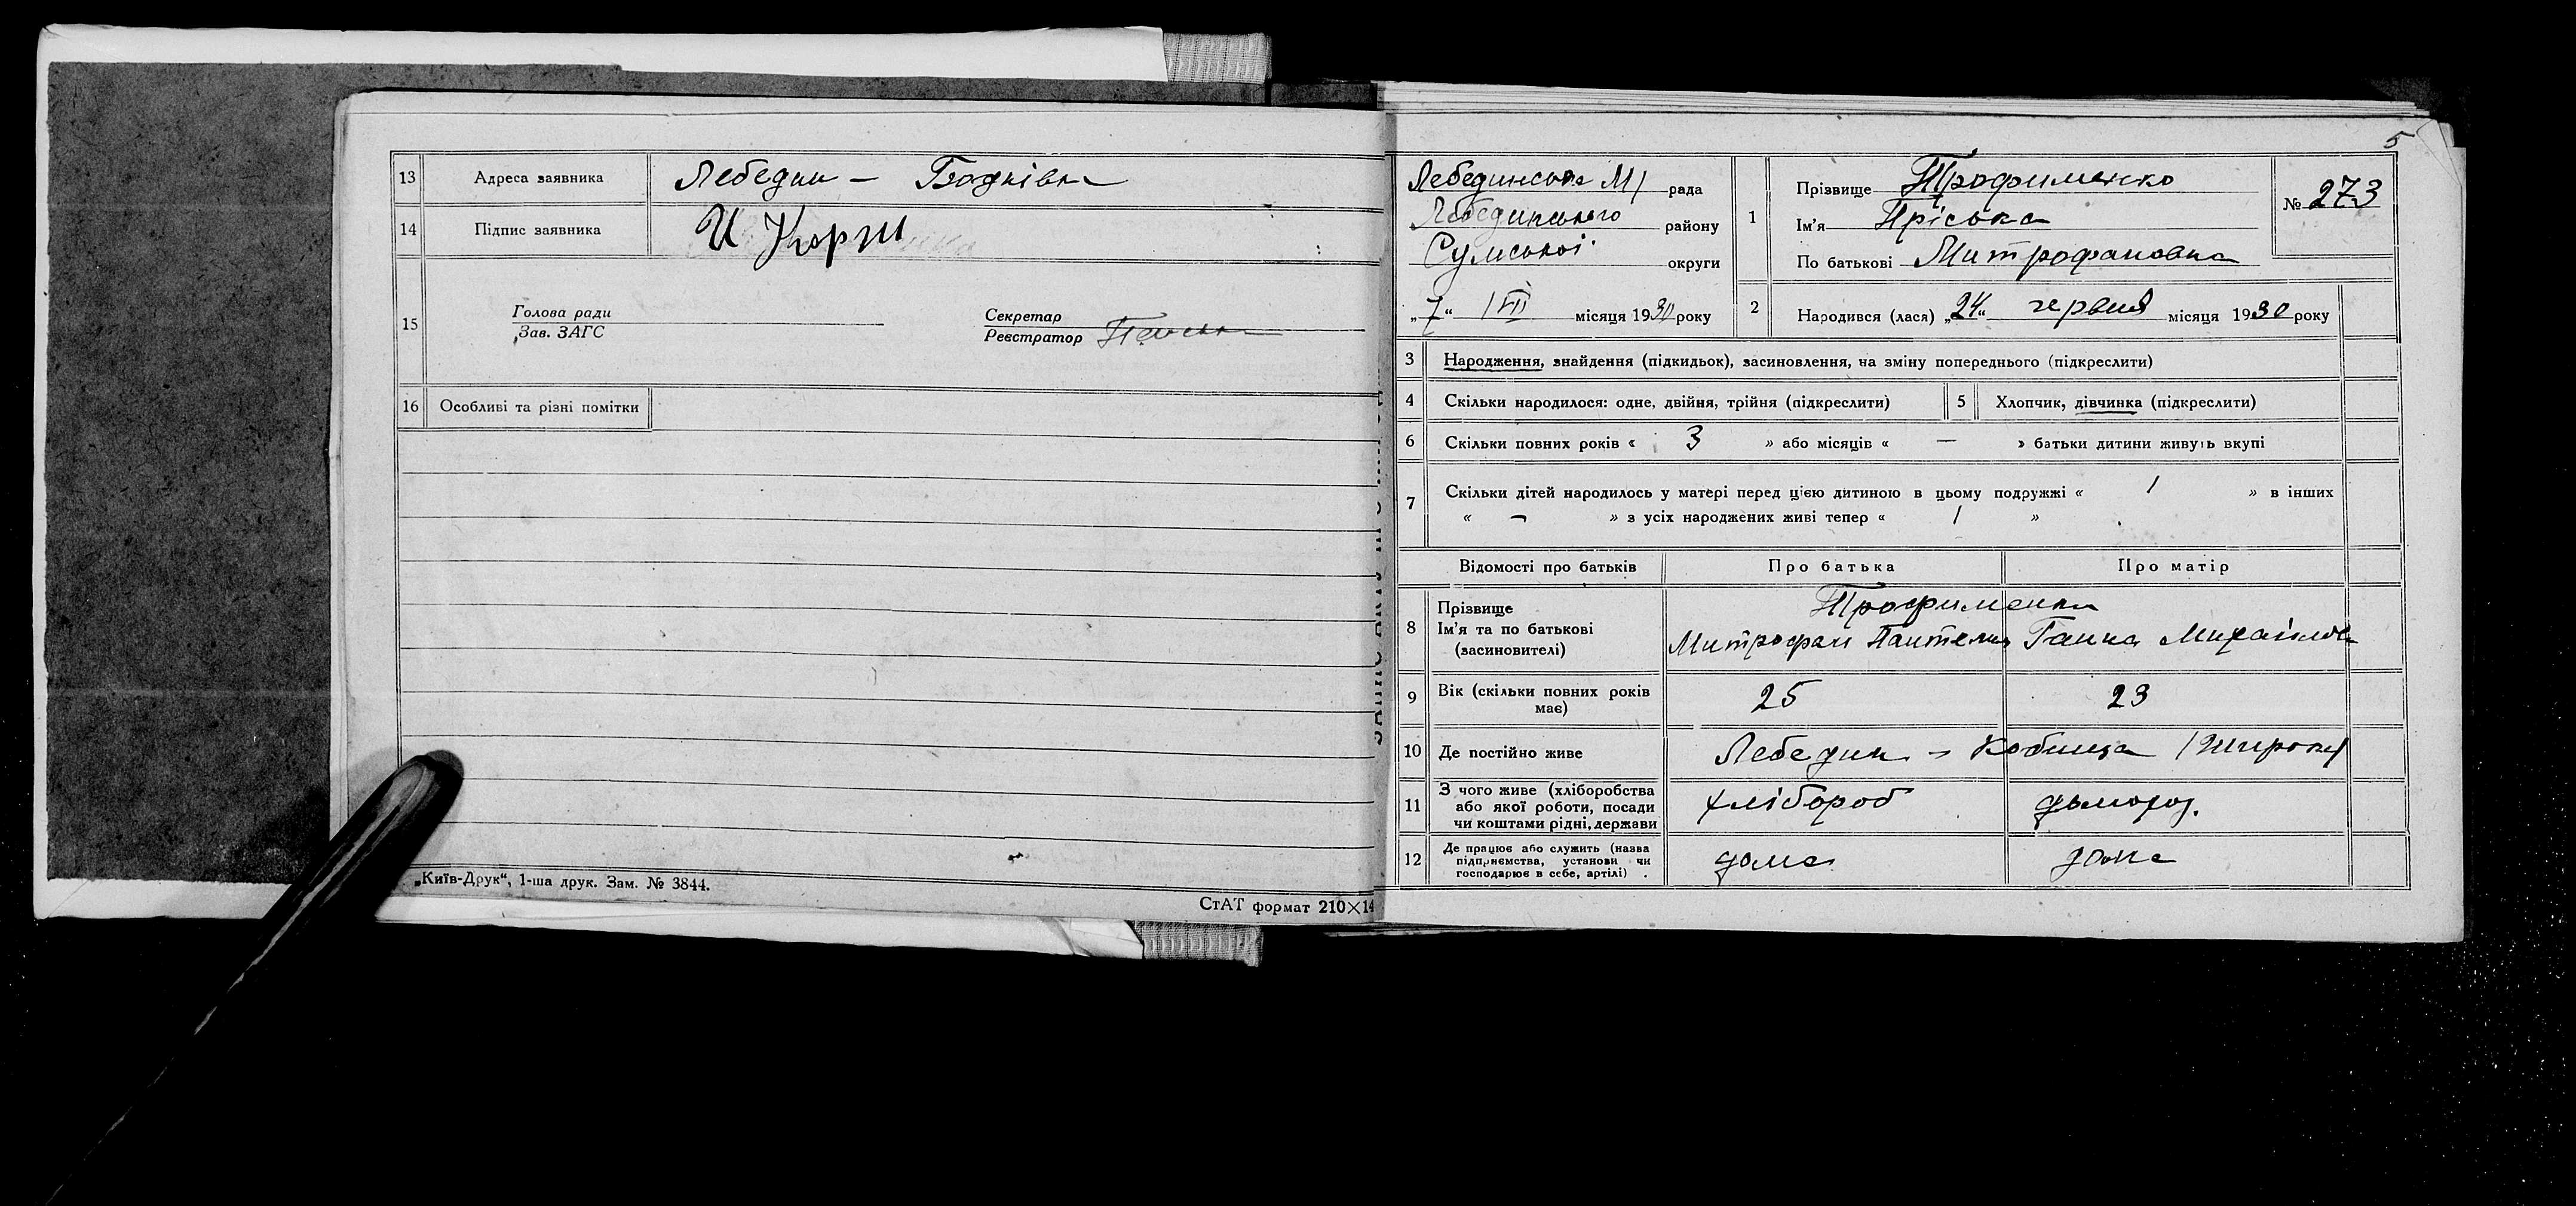 13 Адреса заявника Лебедин –
14 Підпис заявника И Корж
15 Голова ради
Зав. ЗАГС
Секретар
Реєстратор
16 Особливі та різні помітки
„Київ-Друк“, 1-ша друк. Зам. № 3844.
СтАТ формат 210×14
5
Лебединська М/ рада
Лебединського району
Сумської округи
„7“ VII місяця 1930 року
1 Прізвище Трофименко
Ім'я Пріська
По батькові Митрофановна
№ 273
2 Народився (лася) „24“ червня місяця 1930 року
3 Народження, знайдення (підкидьок), засиновлення, на зміну попереднього (підкреслити)
4 Скільки народилося: одне, двійня, трійня (підкреслити) 5 Хлопчик, дівчинка (підкреслити)
6 Скільки повних років « 3 » або місяців « — » батьки дитини живуть вкупі
7 Скільки дітей народилось у матері перед цією дитиною в цьому подружжі « 1 » в інших
« – » з усіх народжених живі тепер « 1 »
Відомості про батьків Про батька Про матір
8 Прізвище
Ім'я та по батькові
(засиновителі)
Трофименки
Митрофан Ганна
9 Вік (скільки повних років має) 25 23
10 Де постійно живе Лебедин –
11 З чого живе (хліборобства
або якої роботи, посади
чи коштами рідні, держави
хлібороб домогос.
12 Де працює або служить (назва
підприємства, установи чи
господарює в себе, артілі) .
дома дома